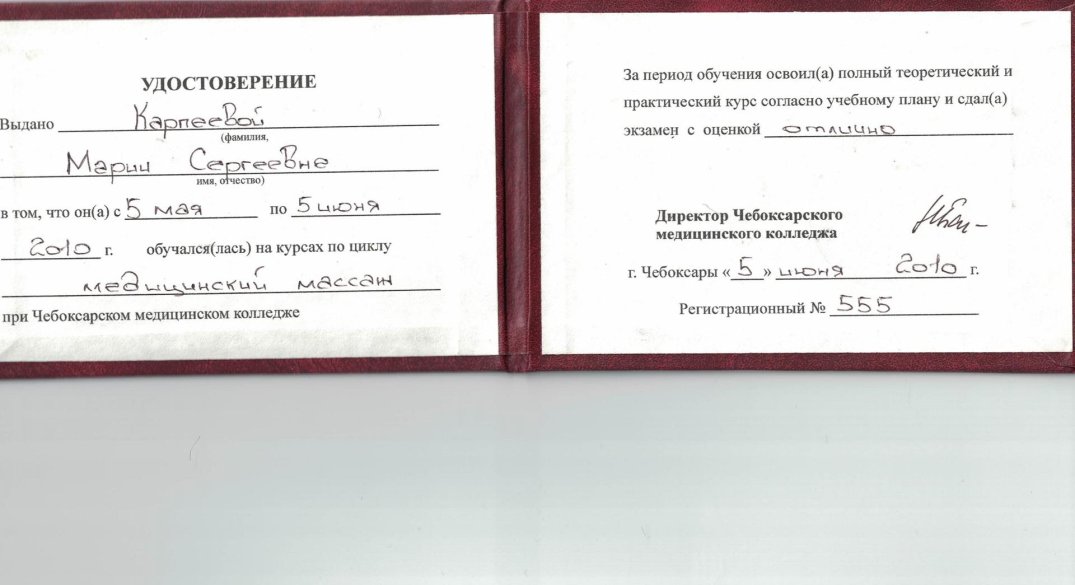 УДОСТОВЕРЕНИЕ
Выдано Карпеевой
(фамилия,
Марии Сергеевне
имя, отчество)
в том, что он(а) с 5 мая по 5 июня
2010 г. обучался(лась) на курсах по циклу
медицинский массаж
при Чебоксарском медицинском колледже
За период обучения освоил(а) полный теоретический и
практический курс согласно учебному плану и сдал(а)
экзамен с оценкой отлично
Директор Чебоксарского
медицинского колледжа
г. Чебоксары «5» июня 2010 г.
Регистрационный № 555